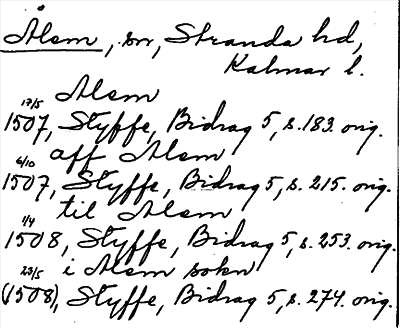 Ålem, sn, Stranda hd,
Kalmar l.
Alem
17/5 1507, Styffe, Bidrag 5, s. 183. orig.
aff Alem
6/10 1507, Styffe, Bidrag 5, s. 215. orig.
til Alem
1/4 1508, Styffe, Bidrag 5, s. 253. orig.
i Alem sokn
23/5 (1508), Styffe, Bidrag 5, s. 274. orig.